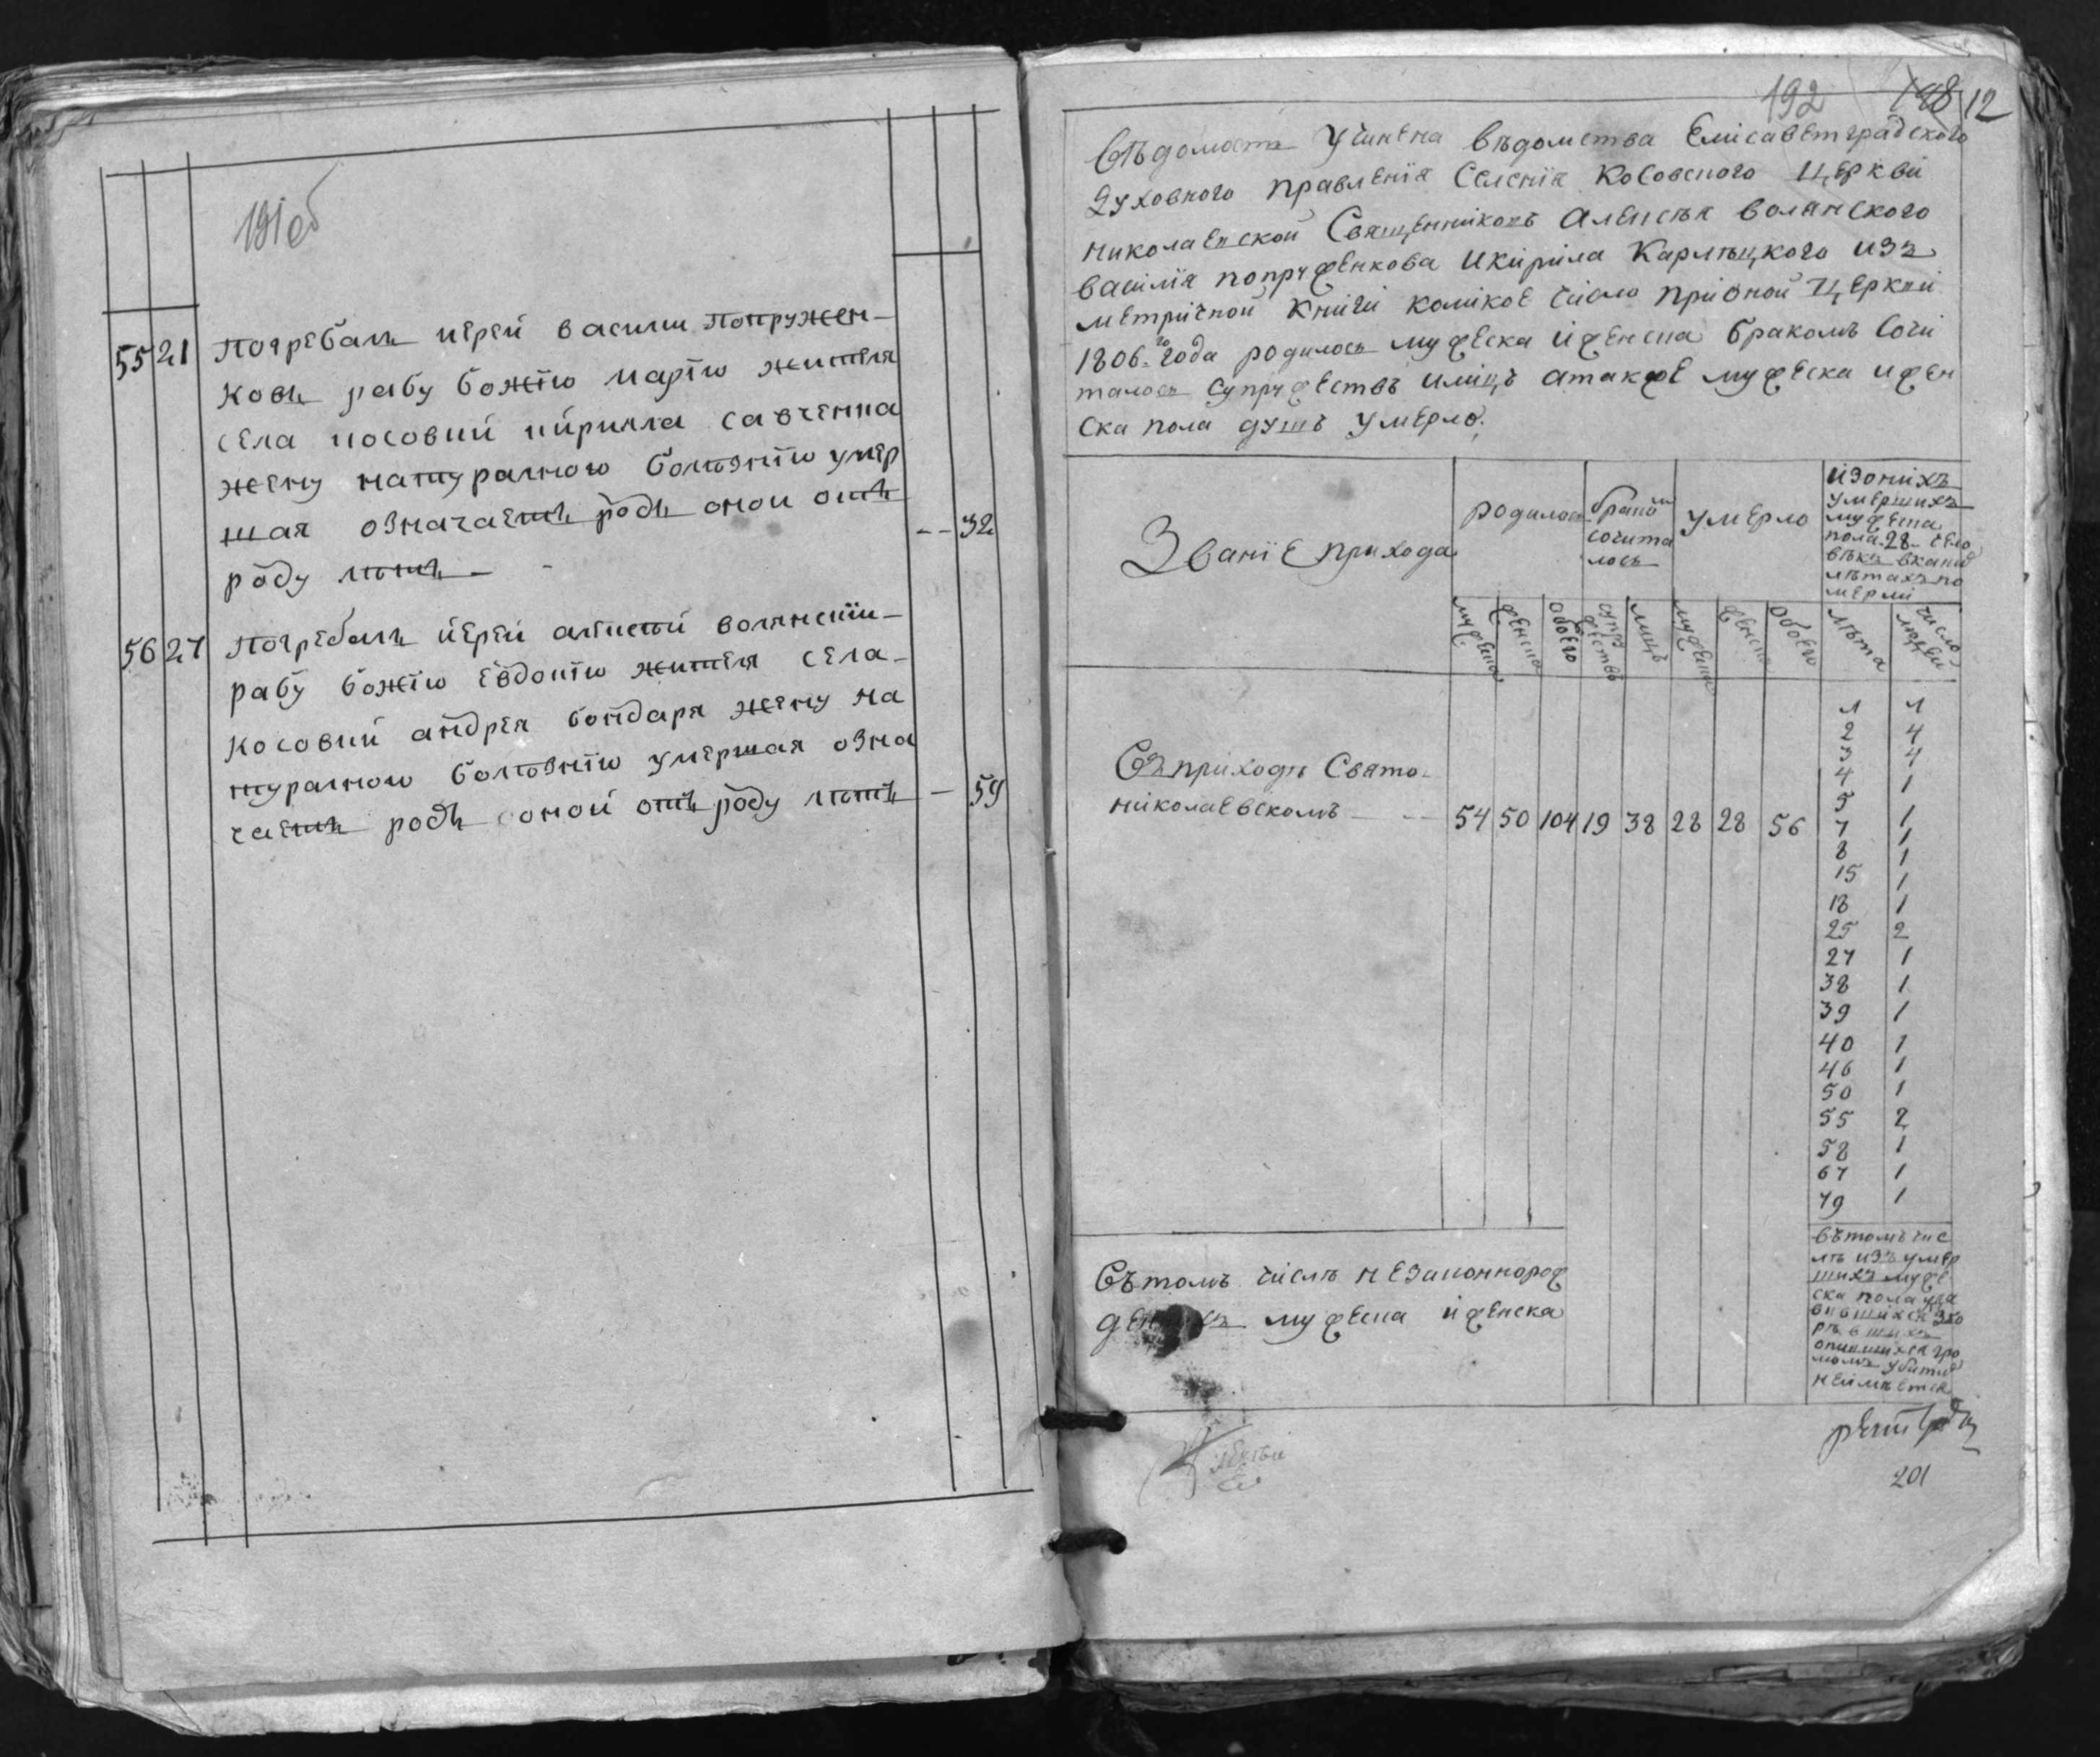 191об
55 21 Погребалъ иерей василии Попружен-
ковъ рабу божїю марїю жителя
села косовки кирилла савченка
жену натуралною болѣзнїю умер
шая означаетъ родъ оной отъ
роду лѣтъ - - - 32
56 27 Погребалъ иерей алексѣй волянскїи-
рабу божїю Евдокїю жителя села-
косовки андрея бондаря жену на
туралною болѣзнїю умершая озна
чаетъ родъ оной отъ роду лѣтъ - 59
192 198 12
Вѣдомость Учинена вѣдомства Елисаветградского
Духовного правленїя Селенїя Косовского Церкви
николаевской Священниковъ Алексѣя волянского
василїя попруженкова и кирила Карлѣцкого изъ
метричной книги коликое число при оной Церкви
1806.го года родилось мужеска и женска бракомъ Сочи
талось супружествъ и лицъ а также мужеска и жен
ска пола душъ умерло.
Званїе прихода
родилось
бракомъ
сочита
лось
умерло
изонихъ
умершихъ
мужеска
пола 28 чело
вѣкъ вкаких
лѣтахъ по
мерли
мужеска женска обоего супружествъ лицъ мужеска женска обоего лѣта число людей
Въ приходѣ Свято-
николаевскомъ - - 54 50 104 19 38 28 28 56
1 1
2 4
3 4
4 1
5 1
7 1
8 1
15 1
18 1
25 2
27 1
38 1
39 1
40 1
46 1
50 1
55 2
58 1
67 1
79 1
Въ томъ числѣ незаконнорож
мужеска и женска
вѣтомъ чис
лѣ изъ умер
шихъ муже
ска пола уда
вившихся зго
рѣвшихъ
опившихся гро
момъ убитих
неимѣется
201